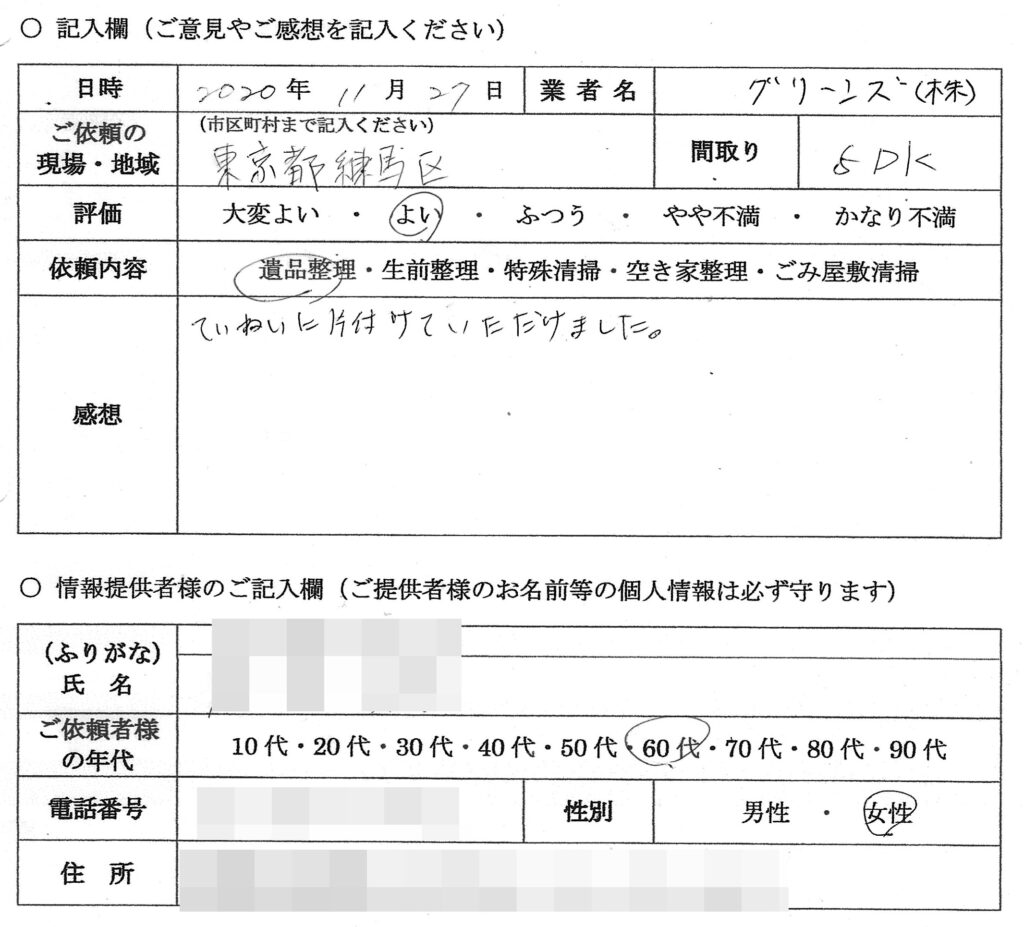 ○ 記入欄（ご意見やご感想を記入ください）
日時 2020年 11月 27日 業者名 グリーンズ(株)
ご依頼の現場・地域 （市区町村まで記入ください）
東京都練馬区 間取り 5DK
評価 大変よい ・ よい ・ ふつう ・ やや不満 ・ かなり不満
依頼内容 遺品整理・生前整理・特殊清掃・空き家整理・ごみ屋敷清掃
感想 ていねいに片付けていただけました。
○ 情報提供者様のご記入欄（ご提供者様のお名前等の個人情報は必ず守ります）
（ふりがな）
氏 名
ご依頼者様の年代 10代・20代・30代・40代・50代・60代・70代・80代・90代
電話番号 性別 男性 ・ 女性
住 所